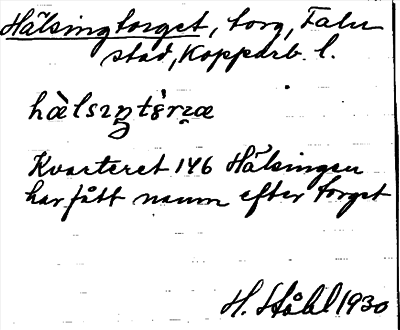 Hälsingtorget, torg, Falu
stad, Kopparb. l.
hälsıŋtèrıæ
Kvarteret 146 Hälsingen
har fått namn efter torget
H. Ståhl 1930